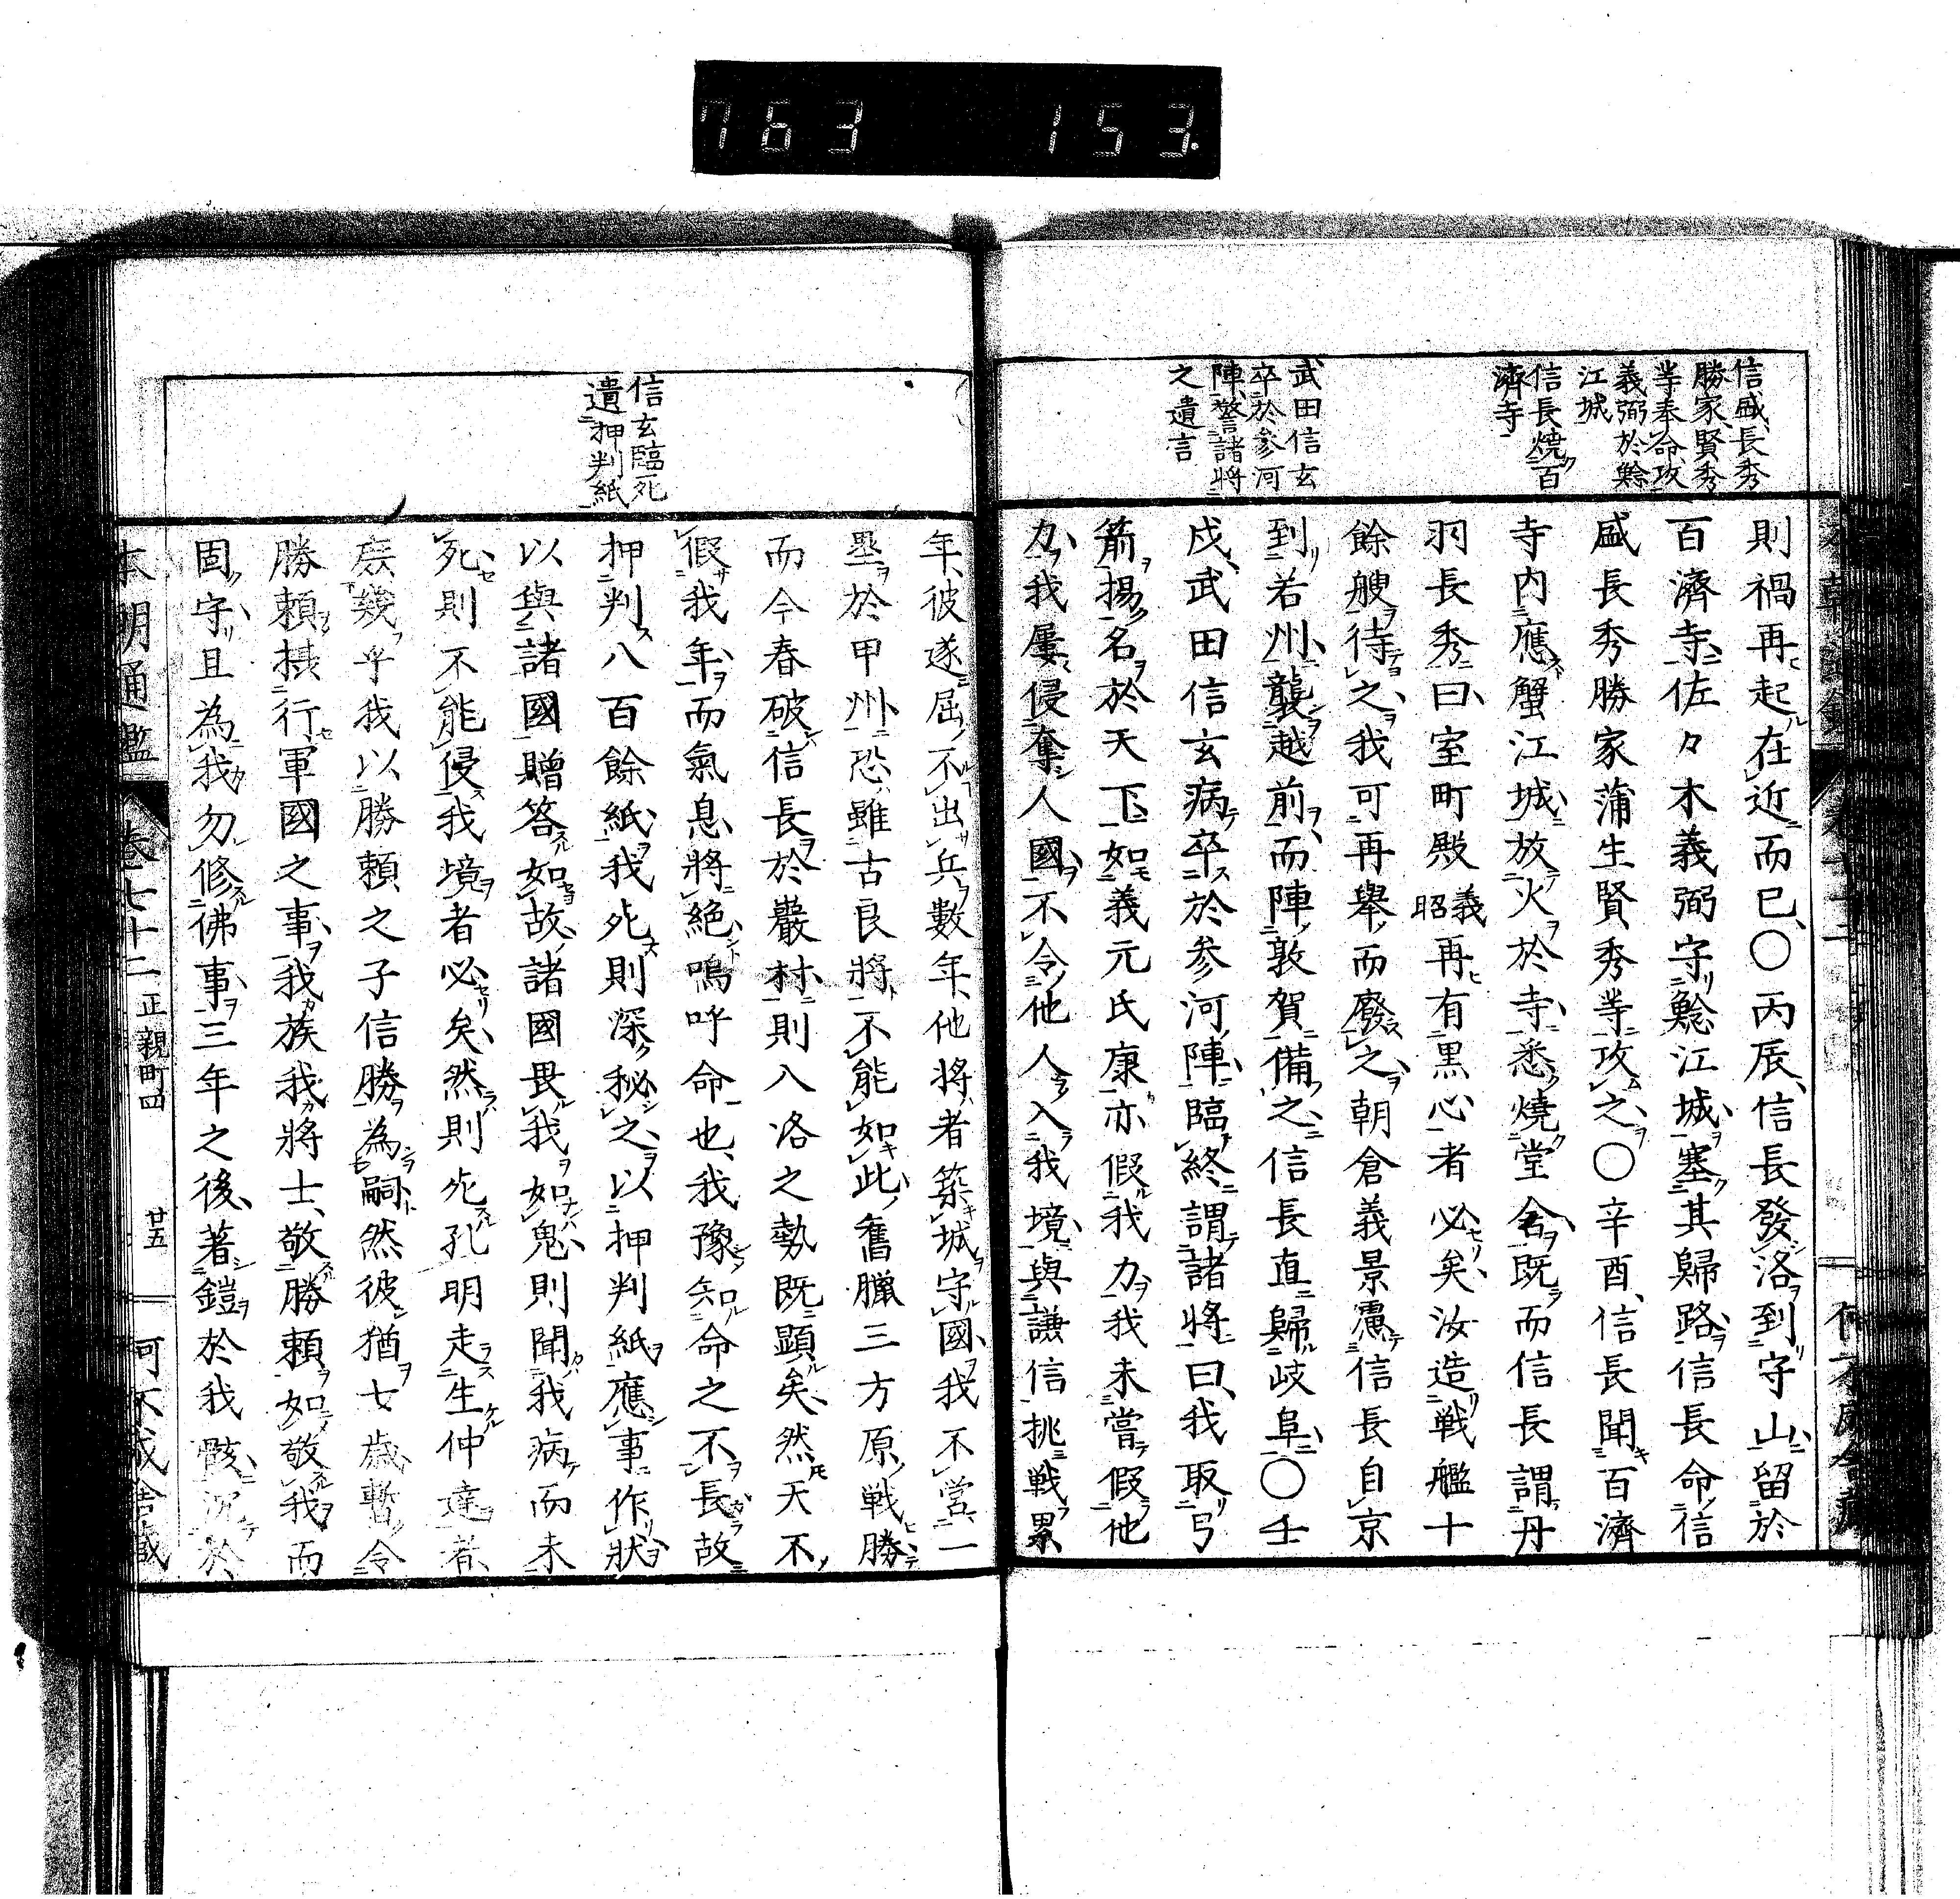 763 153.
信盛長秀
勝家賢秀
等奉命攻
義弼於鯰
江城
信長燒百
濟寺
武田信玄
卒於參河
陣警諸將
之遺言
則禍再起在近而已〇丙辰信長發洛到守山留於
百濟寺佐々木義弼守鯰江城塞其歸路信長命信
盛長秀勝家蒲生賢秀等攻之〇辛酉信長聞百濟
寺内應蟹江城放火於寺悉燒堂舍既而信長謂丹
羽長秀曰室町殿義昭再有黒心者必矣汝造戦艦十
餘艘待之我可再舉而廢之朝倉義景慮信長自京
到若州襲越前而陣敦賀備之信長直歸岐阜〇壬
戌武田信玄病卒於参河陣臨終謂諸將曰我取弓
箭揚名於天下如義元氏康亦假我力我未嘗假他
力我屢侵奪人國不令他人入我境與謙信挑戦累
信玄臨死
遺押判紙
年彼遂屈不出兵數年他將者築城守國我不營一
壘於甲州恐雖古良將不能如此舊臘三方原戦勝
而今春破信長於嚴村則八洛之勢既顯矣然天不
假我年而氣息將絶嗚呼命也我豫知命之不長故
押判八百餘紙我死則深秘之以押判紙應事作狀
以與諸國贈答如故諸國畏我如鬼則聞我病而未
死則不能侵我境者必矣然則死孔明走生仲達者
庶幾乎我以勝頼之子信勝為嗣然彼猶七歳暫令
勝頼摂行軍國之事我族我將士敬勝頼如敬我而
固守且為我勿修佛事三年之後著鎧於我骸沉於
本朝通鑑 卷七十二 正親町四 廿五